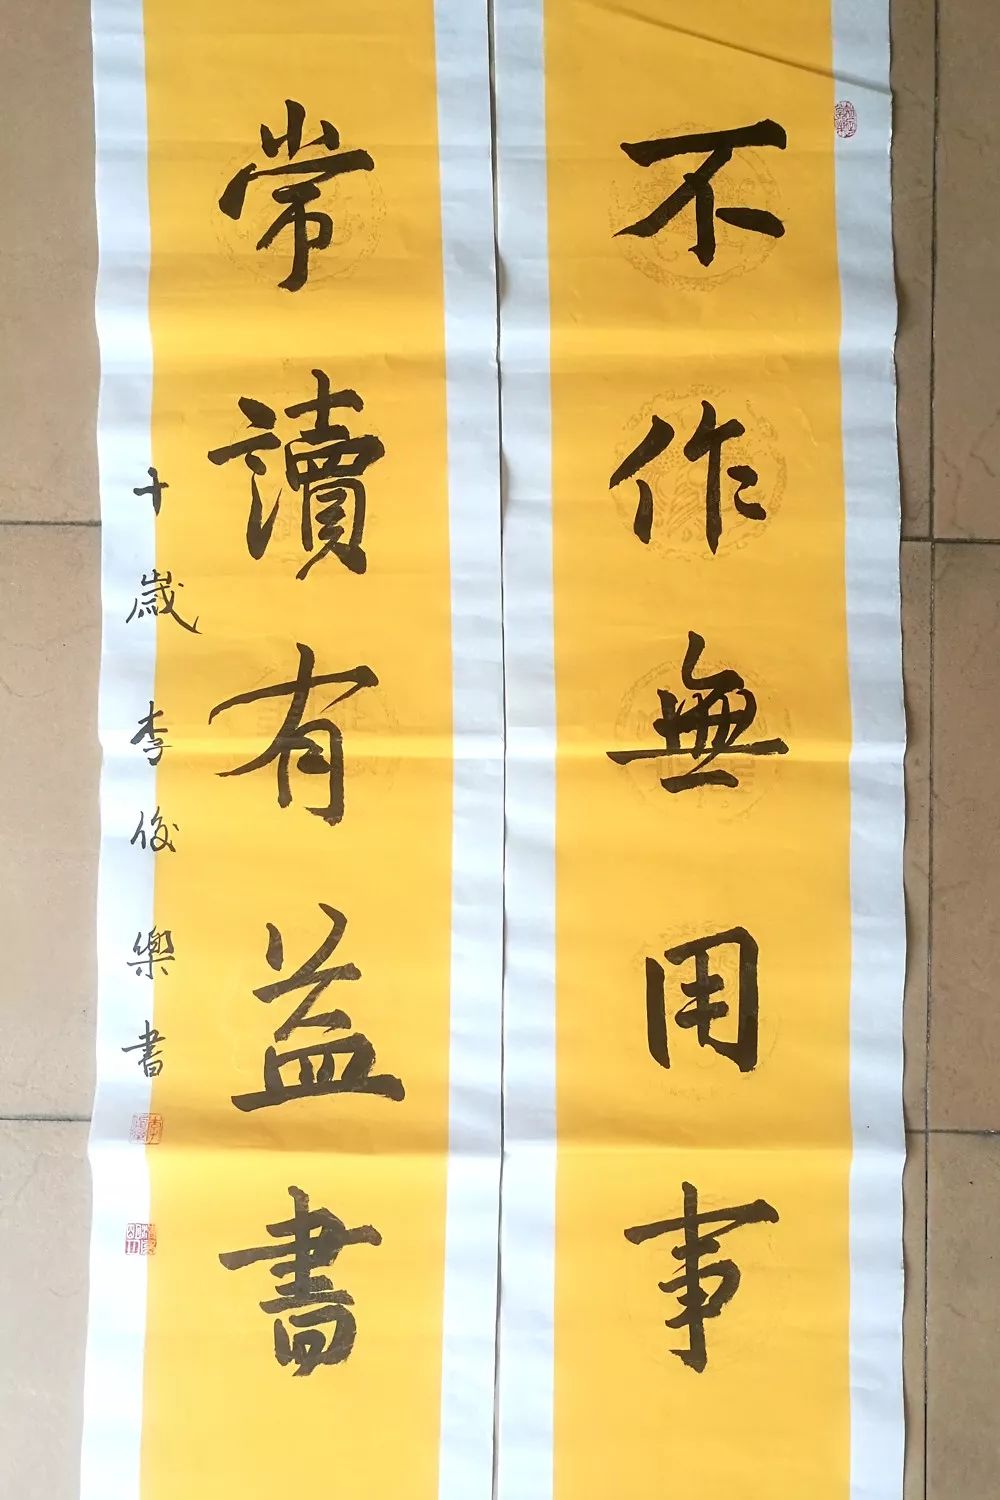 不作無用事
常讀有益書
十歲李俊樂書